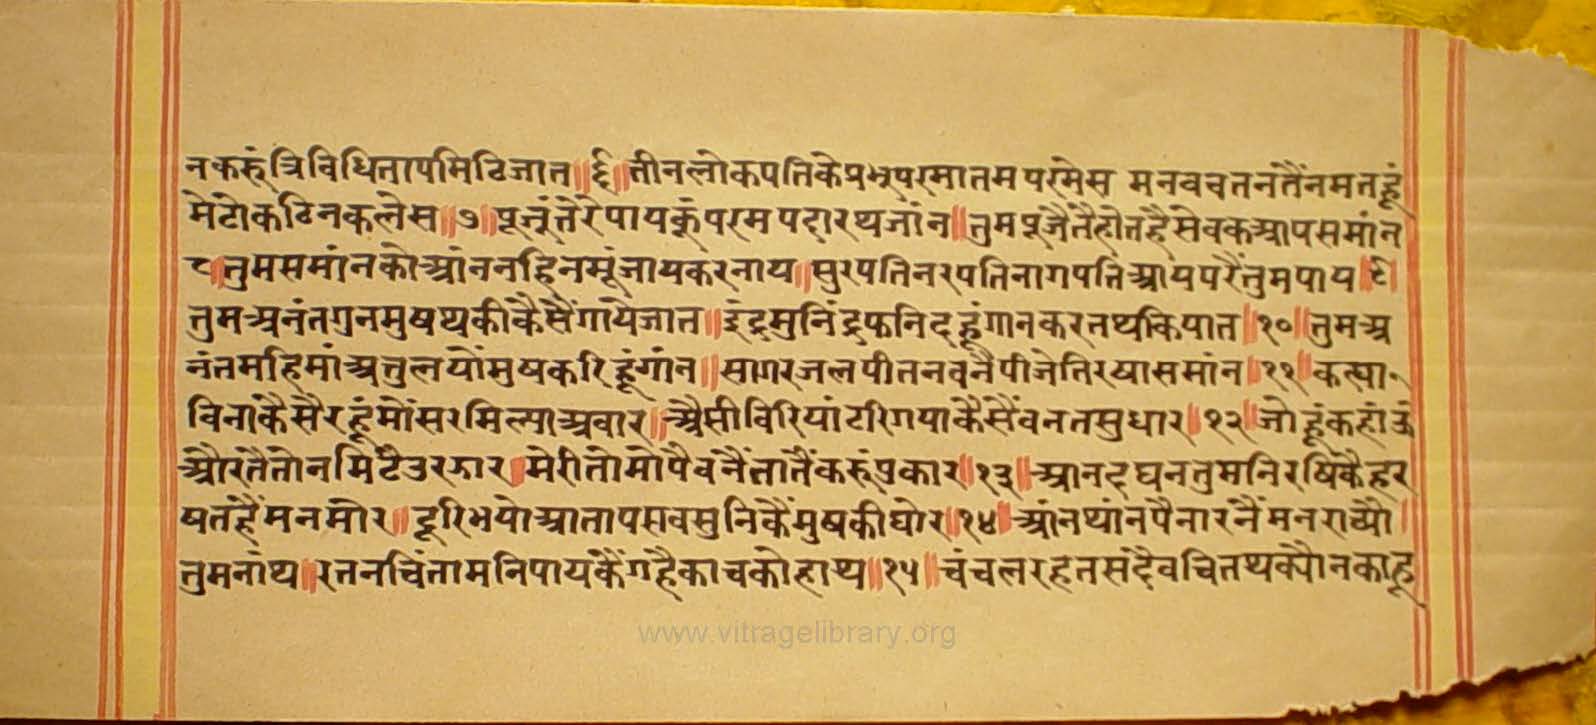 न करूं त्रिविधि ताप मिटि जात ॥६॥ तीन लोक पति के प्रभू परमातम परमेस मन वच तन तैं नमत हूं
मेटो कठिन कलेस ॥७॥ पूजूं तेरे पाय कूं परम पदारथ जांन ॥ तुम पूजैं तैं होत है सेवक आप समांन
८॥ तुम समांन को आंन नहि नमूं जाय कर नाय ॥ सुरपति नरपति नागपति आय परैं तुम पाय ॥९॥
तुम अनंत गुन मुष थकी कैसैं गाये जात ॥ इंद्र मुनिंद्र फनिद हूं गान करत थकि पात ॥१०॥ तुम अ
नंत महिमां अतुल यों मुष करि हूं गांन ॥ सागर जल पीत न वनै पीजे तिरषा समांन ॥११॥ कह्या
विना कैसै रहूं मोंसर मिल्या अवार ॥ अैसी विरियां टरि गया कैसैं वनत सुधार ॥१२॥ जो हूं कहांऊं
और तैं तो न मिटै उरझार ॥ मेरी तो मो पै वनैं तातैं करूं पुकार ॥१३॥ आनदघन तुम निरषिकै हर
षत है मन मोर ॥ दूरि भयो आताप सव सुनिकैं मुष की घोर ॥१४॥ आंन थांन पै ना रनैं मन राच्यौ
तुम नाथ ॥ रतन चिंतामनि पायकैं गहै काच को हाथ ॥१५॥ चंचल रहत सदैव चित थक्यौ न काहू
www.vitragelibrary.org